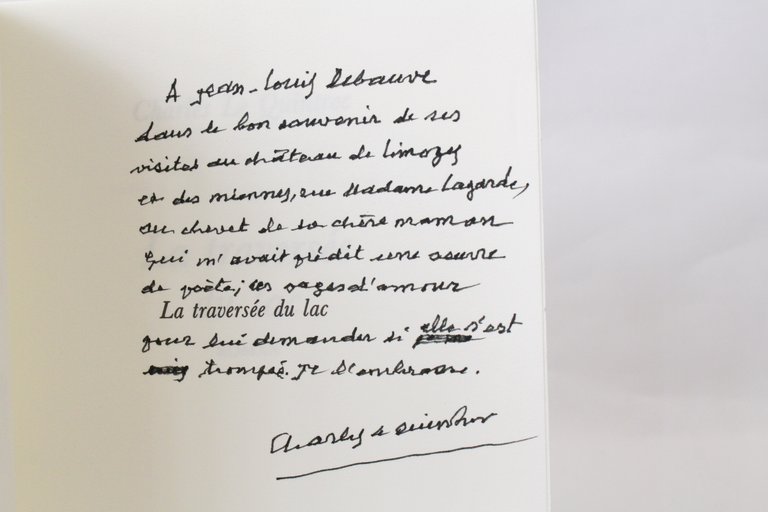 A Jean-Louis Debauve
dans le bon souvenir de ses
visites au château de Limozy
et des miennes, rue Madame Lagarde,
au chevet de sa chère maman
qui m'avait prédit une oeuvre
de poète; ces pages d'amour
La traversée du lac
pour lui demander si elle s'est
trompée. Je l'embrasse.